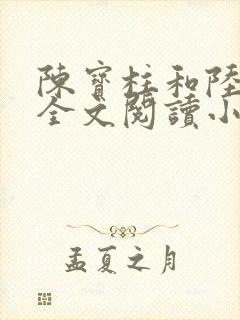 陳寶柱和陸
全文閱讀小
孟夏之月